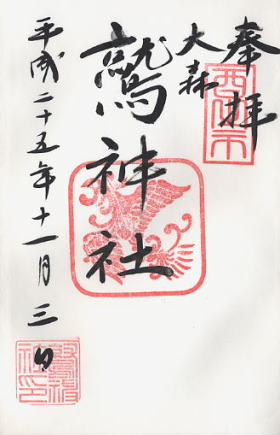 奉拝
大森
鷲神社
平成二十五年十一月三日
酉の市
鷲神社印